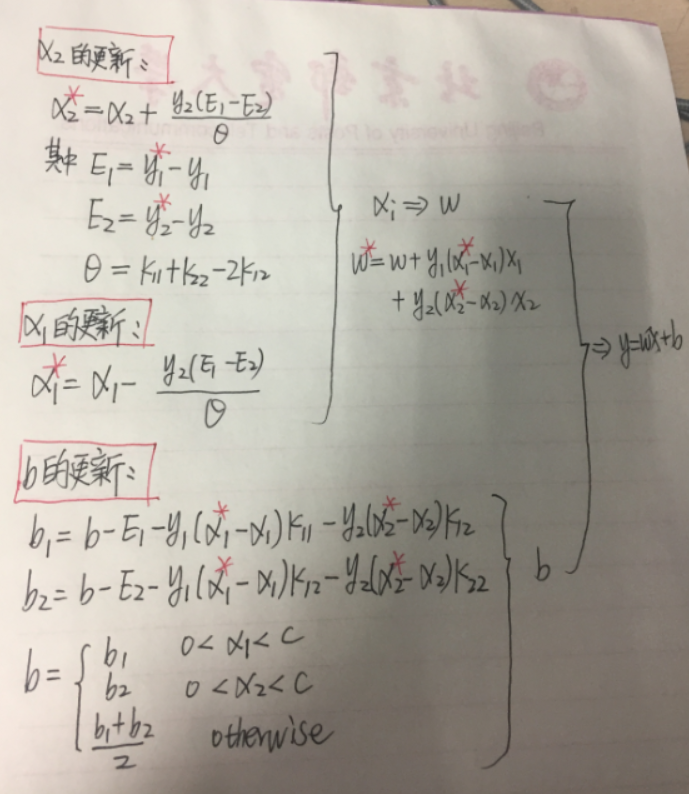 α₂的更新:
α₂* = α₂ + y₂(E₁-E₂)/θ
其中 E₁ = y₁* - y₁
E₂ = y₂* - y₂
θ = K₁₁ + K₂₂ - 2K₁₂
α₁的更新:
α₁* = α₁ - y₂(E₁-E₂)/θ
αᵢ ⇒ w
w* = w + y₁(α₁*-α₁)x₁
+ y₂(α₂*-α₂)x₂
b的更新:
b₁ = b - E₁ - y₁(α₁*-α₁)K₁₁ - y₂(α₂*-α₂)K₁₂
b₂ = b - E₂ - y₁(α₁*-α₁)K₁₂ - y₂(α₂*-α₂)K₂₂
b = { b₁ 0<α₁<C
b₂ 0<α₂<C
(b₁+b₂)/2 otherwise
b
⇒ y=wx+b